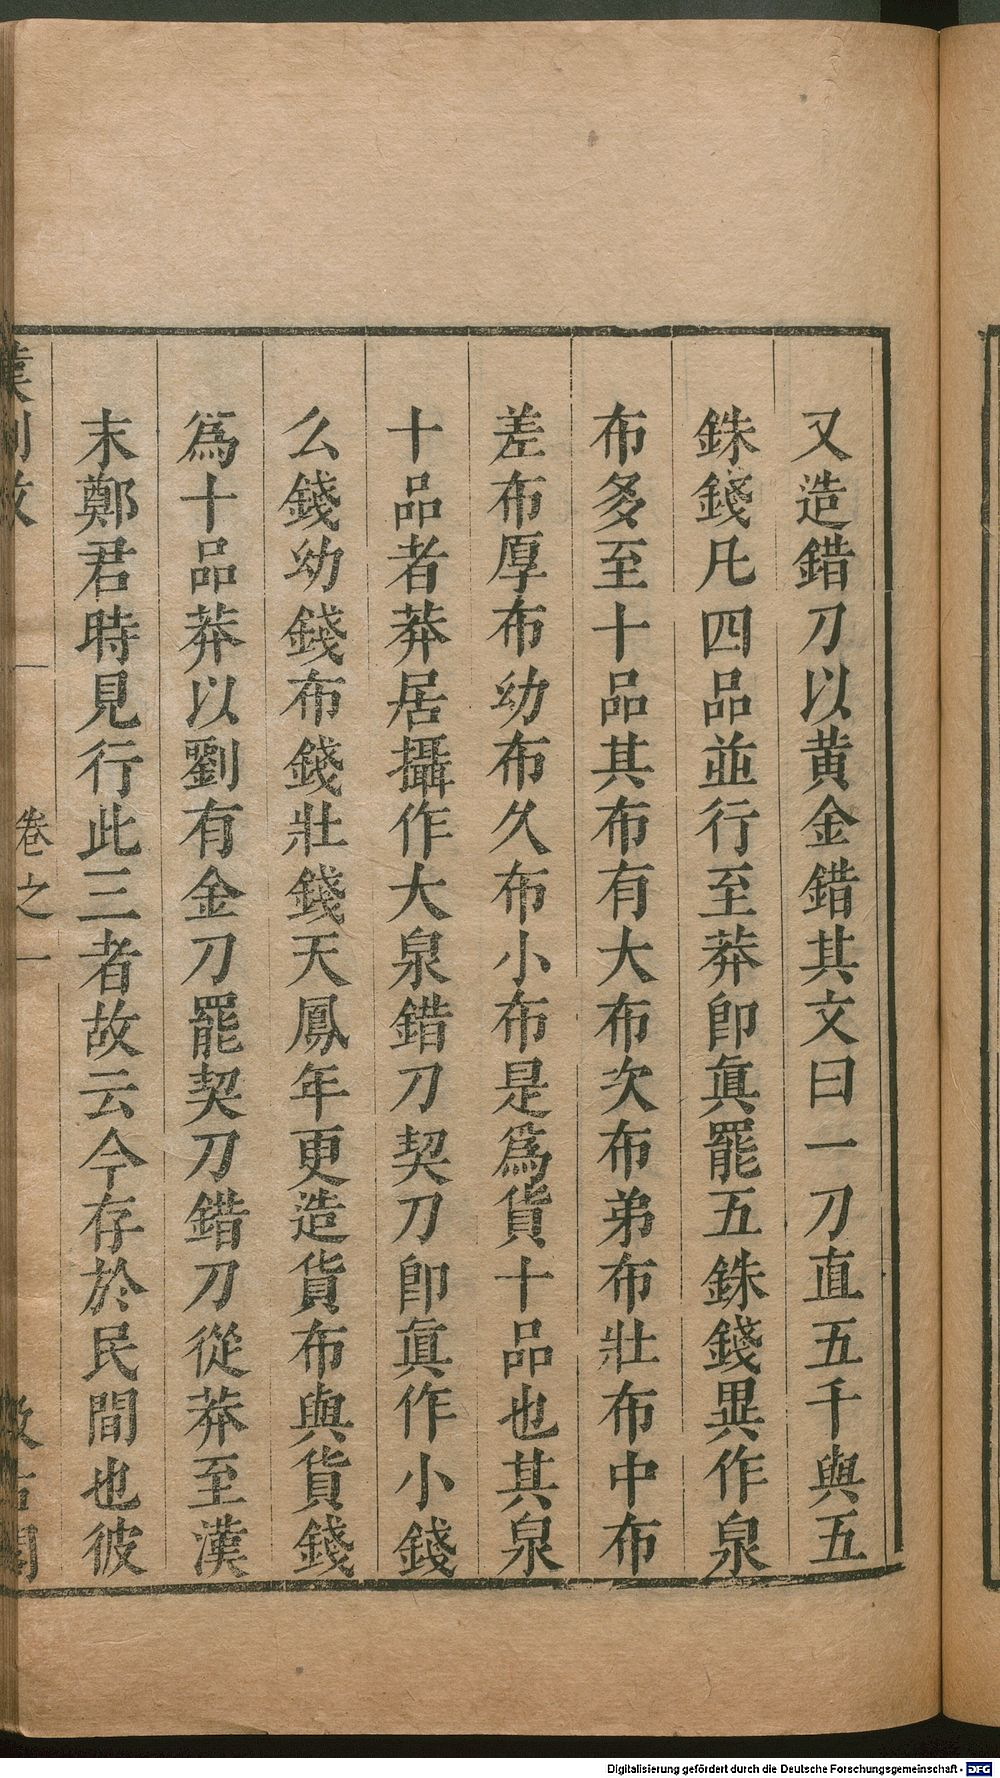 又造錯刀以黄金錯其文曰一刀直五千與五
銖錢凡四品並行至莽卽眞罷五銖錢異作泉
布多至十品其布有大布次布弟布壯布中布
差布厚布幼布久布小布是爲貨十品也其泉
十品者莽居攝作大泉錯刀契刀卽眞作小錢
么錢幼錢布錢壯錢天鳳年更造貨布與貨錢
爲十品莽以劉有金刀罷契刀錯刀從莽至漢
末鄭君時見行此三者故云今存於民間也彼
漢制攷 卷之一 汲古閣
Digitalisierung gefördert durch die Deutsche Forschungsgemeinschaft - DFG